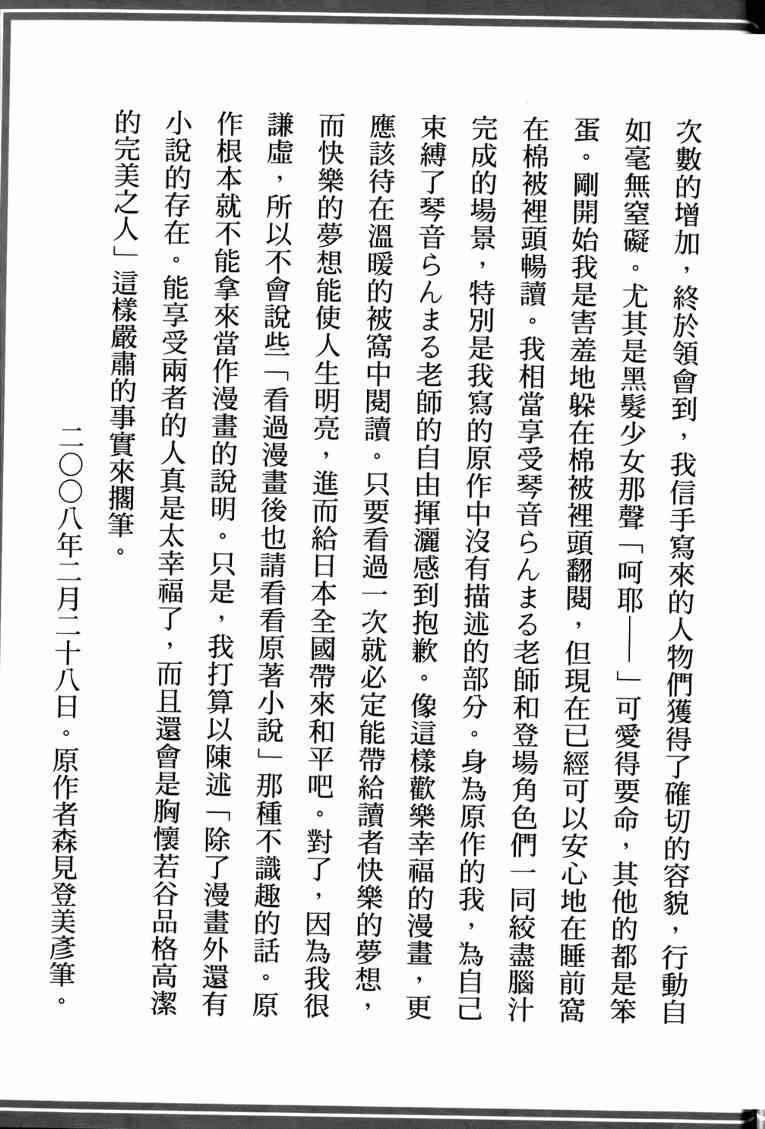 次數的增加，終於領會到，我信手寫來的人物們獲得了確切的容貌，行動自
如毫無窒礙。尤其是黑髮少女那聲「呵耶——」可愛得要命，其他的都是笨
蛋。剛開始我是害羞地躲在棉被裡頭翻閱，但現在已經可以安心地在睡前窩
在棉被裡頭暢讀。我相當享受琴音らんまる老師和登場角色們一同絞盡腦汁
完成的場景，特別是我寫的原作中沒有描述的部分。身為原作的我，為自己
束縛了琴音らんまる老師的自由揮灑感到抱歉。像這樣歡樂幸福的漫畫，更
應該待在溫暖的被窩中閱讀。只要看過一次就必定能帶給讀者快樂的夢想，
而快樂的夢想能使人生明亮，進而給日本全國帶來和平吧。對了，因為我很
謙虛，所以不會說些「看過漫畫後也請看看原著小說」那種不識趣的話。原
作根本就不能拿來當作漫畫的說明。只是，我打算以陳述「除了漫畫外還有
小說的存在。能享受兩者的人真是太幸福了，而且還會是胸懷若谷品格高潔
的完美之人」這樣嚴肅的事實來擱筆。
二〇〇八年二月二十八日。原作者森見登美彥筆。